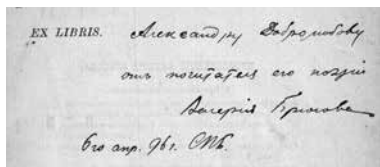 EX LIBRIS. Александру Добролюбову
отъ почитателя его поэзiи
Валерiя Брюсова
6го апр. 96 г. СПБ.